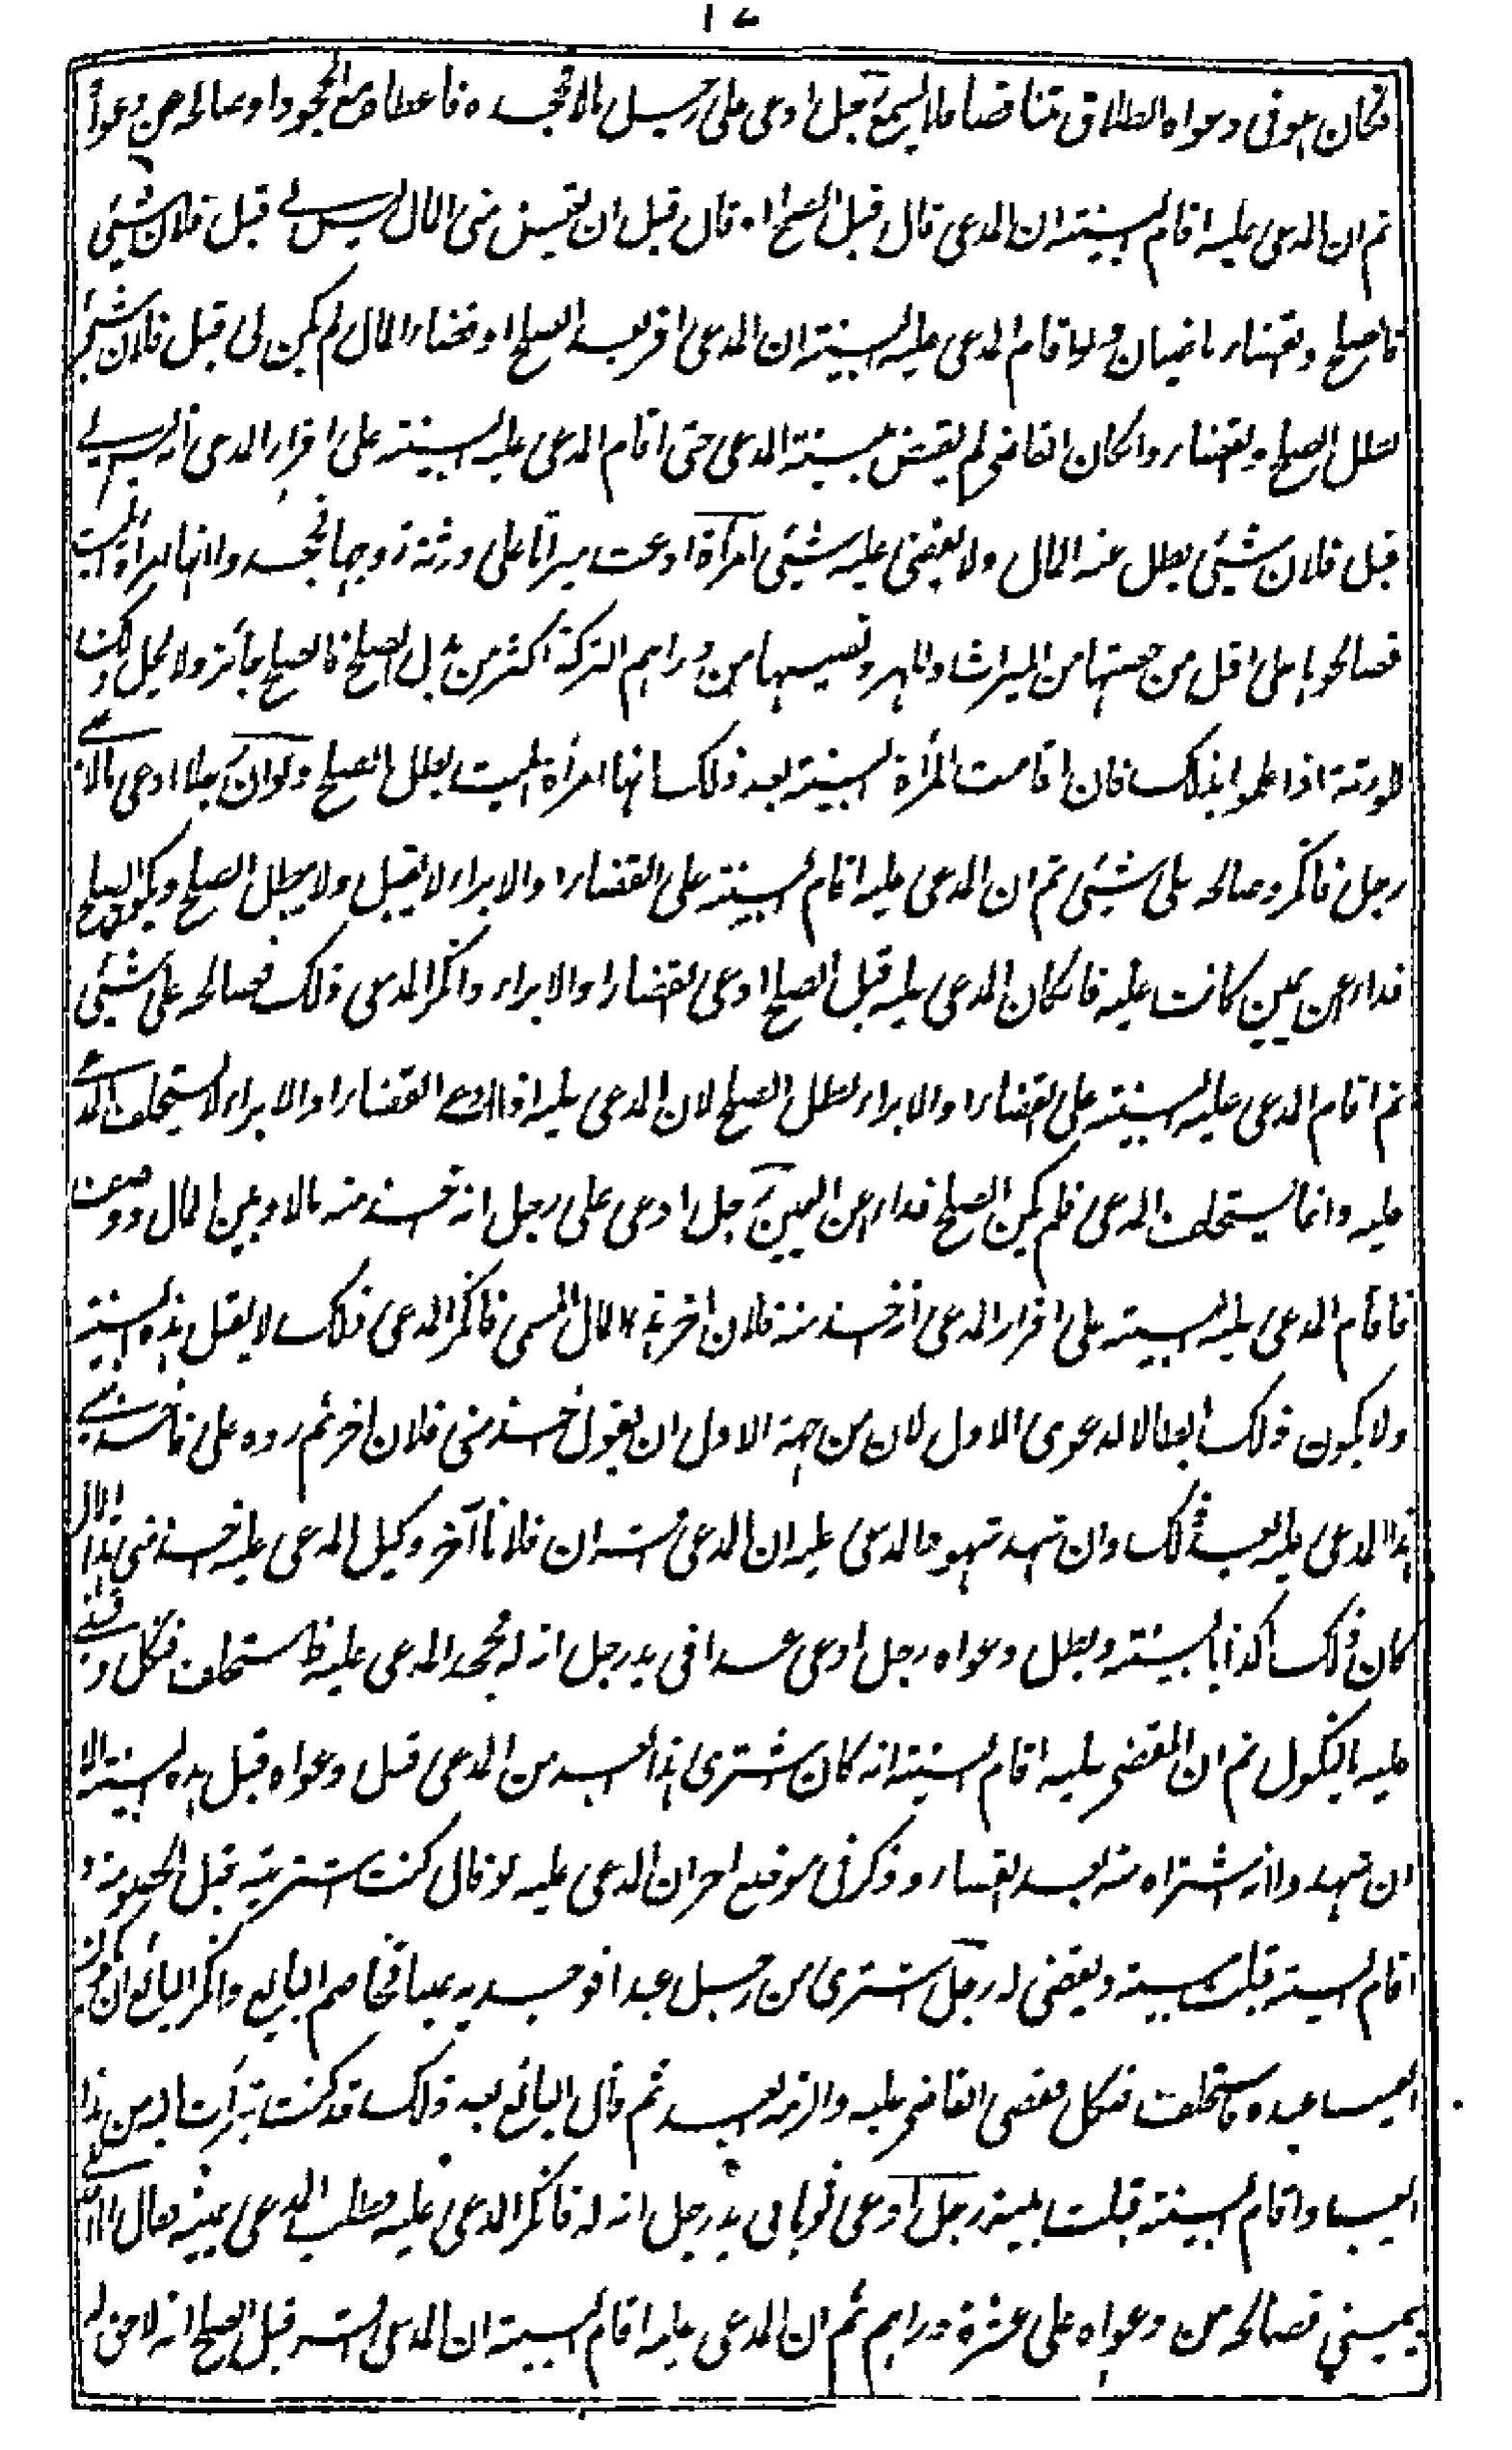 ١٧
فكان هو فى دعواه الطلاق متناقضا فلا يسمع رجل ادعى على رجل مالا فجحده فاعطاه مع الجحود او صالحه عن دعواه
ثم ان المدعى عليه اقام البينة ان المدعى قال قبل الصلح او قال قبل ان يقبض منى المال ليس لى قبل فلان شيئى
فالصلح والقضاء ماضيان ولو اقام المدعى عليه البينة ان المدعى اقر بعد الصلح او قضاء المال لم يكن لى قبل فلان شيئى
بطل الصلح والقضاء وان كان القاضى لم يقض ببينة المدعى حتى اقام المدعى عليه البينة على اقرار المدعى انه ليس لى
قبل فلان شيئى بطل عنه المال ولا يقضى عليه بشيئى امرأة ادعت ميراثا على ورثة زوجها فجحدوا انها امرأة الميت
فصالحوها على اقل من حصتها من الميراث والمهر ونصيبها من دراهم التركة اكثر من بدل الصلح فالصلح جائز ولا يحل ذلك
للورثة اذا علموا بذلك فان اقامت المرأة البينة بعد ذلك انها امرأة الميت بطل الصلح ولو ان رجلا ادعى مالا على
رجل فانكر وصالحه على شيئى ثم ان المدعى عليه اقام البينة على القضاء او الابراء لا يقبل ولا يبطل الصلح ويكون الصلح
فداء عن يمين كانت عليه فان كان المدعى عليه قبل الصلح ادعى القضاء او الابراء وانكر المدعى ذلك فصالحه على شيئى
ثم اقام المدعى عليه البينة على القضاء او الابراء بطل الصلح لان المدعى عليه اذا ادعى القضاء او الابراء لا يستحلف المدعى
عليه وانما يستحلف المدعى فلم يكن الصلح فداء عن اليمين رجل ادعى على رجل انه اخذ منه مالا وبين المال ووصف
فاقام المدعى عليه البينة على اقرار المدعى انه اخذ منه فلان اخر هذا المال المسمى فانكر المدعى ذلك لا يقبل هذه البينة
ولا يكون ذلك ابطالا لدعوى الاول لان من حجة الاول ان يقول اخذ منى فلان اخر ثم رده على فاخذ منى
هذا المدعى عليه بعد ذلك وان شهد شهود المدعى عليه ان المدعى اقر ان فلانا آخر وكيل المدعى عليه اخذ منى هذا المال
كان ذلك اكذابا لبينته ويبطل دعواه رجل ادعى عبدا فى يد رجل انه له فجحد المدعى عليه فاستحلف فنكل وقضى
عليه بالنكول ثم ان المقضى عليه اقام البينة انه كان اشترى هذا العبد من المدعى قبل دعواه قبل هذه البينة الا
ان شهدوا انه اشتراه منه بعد القضاء وذكر فى موضع اخر ان المدعى عليه لو قال كنت اشتريته قبل الخصومة و
اقام البينة قبلت بينته ويقضى له رجل اشترى من رجل عبدا فوجد به عيبا فخاصم البايع وانكر البائع ان يكون
العيب عنده فاستحلف فنكل فقضى القاضى عليه والزمه العبد ثم قال البائع بعد ذلك قد كنت تبرأت اليه من هذا
العيب واقام البينة قبلت بينته رجل ادعى ثوبا فى يد رجل انه له فانكر المدعى عليه فطلب المدعى يمينه فقال
يمينى فصالحه من دعواه على عشرة دراهم ثم ان المدعى عليه اقام البينة ان المدعى اقر قبل الصلح انه لا حق له